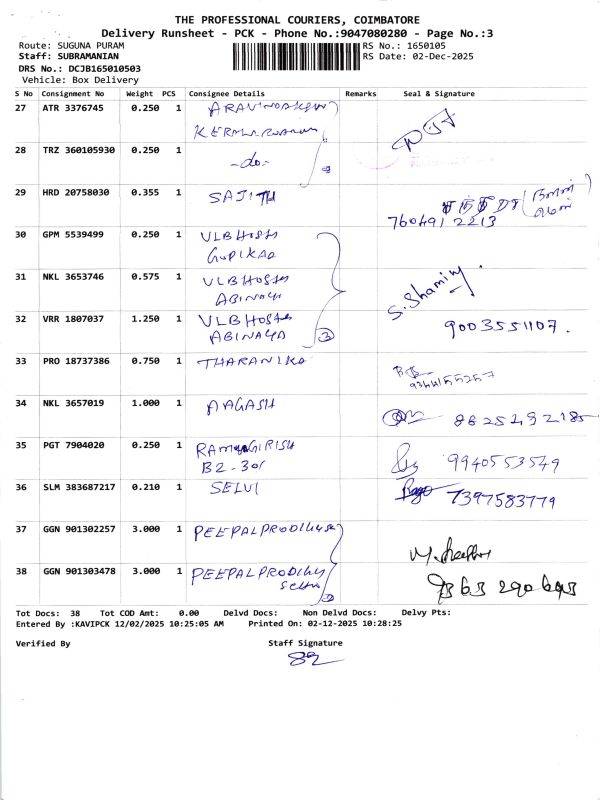 THE PROFESSIONAL COURIERS, COIMBATORE
Delivery Runsheet - PCK - Phone No.:9047080280 - Page No.:3
Route: SUGUNA PURAM
RS No.: 1650105
Staff: SUBRAMANIAN
RS Date: 02-Dec-2025
DRS No.: DCJB165010503
Vehicle: Box Delivery
S No Consignment No Weight PCS Consignee Details Remarks Seal & Signature
27 ATR 3376745 0.250 1
28 TRZ 360105930 0.250 1 -do-
29 HRD 20758030 0.355 1 SAJITH
760491 2213
30 GPM 5539499 0.250 1 VLB Hosts
GOPIKAA
31 NKL 3653746 0.575 1 VLB Hosts
ABINAYA
S. Shamily.
32 VRR 1807037 1.250 1 VLB Hosts
ABINAYA 3
9003551107.
33 PRO 18737386 0.750 1 THARANIKA
34 NKL 3657019 1.000 1 AAGASH
35 PGT 7904020 0.250 1 GIRISH
B2-301
9940553549
36 SLM 383687217 0.210 1 SELVI 7397583779
37 GGN 901302257 3.000 1 PEEPAL
38 GGN 901303478 3.000 1 PEEPAL
9363 290693
Tot Docs: 38 Tot COD Amt: 0.00 Delvd Docs: Non Delvd Docs: Delvy Pts:
Entered By :KAVIPCK 12/02/2025 10:25:05 AM Printed On: 02-12-2025 10:28:25
Verified By Staff Signature